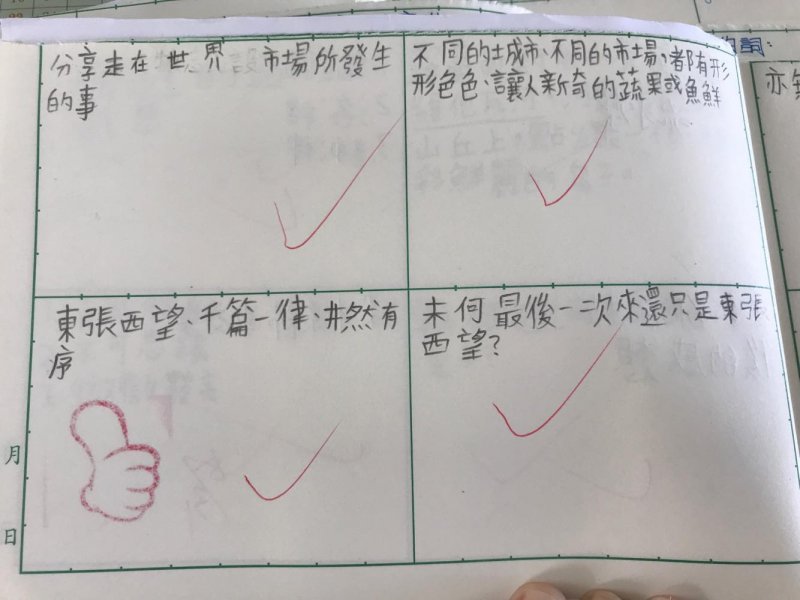 分享走在世界 市場所發生
的事
不同的城市、不同的市場、都有形
形色色、讓人新奇的蔬果或魚鮮
東張西望、千篇一律、井然有
序
未何最後一次來還只是東張
西望?
月
日
詞:
亦